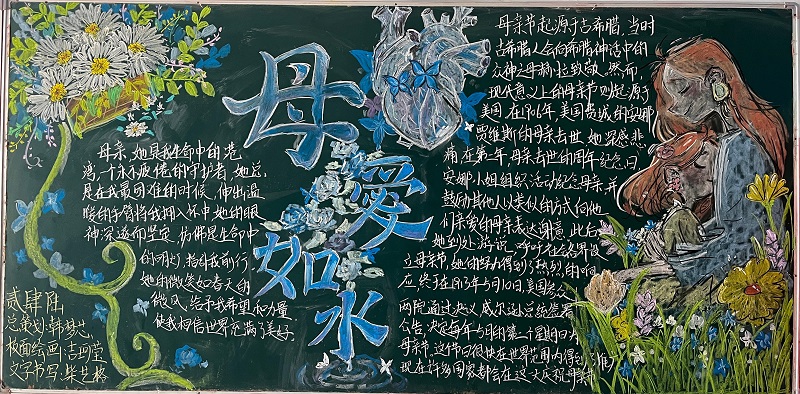 母愛如水
母亲,她是我生命中的范
离,一个永不疲倦的守护者,她总
是在我最困难的时候,伸出温
暖的手臂将我拥入怀中,她的眼
神深邃而坚定,仿佛是生命中
的明灯,指引我前行
她的微笑如春天的
微风,给予我希望和力量
使我相信世界充满了美好.
贰肆陆
总策划:韩梦
板面绘画:吉珂莹
文字书写:柴艺格
母亲节起源于古希腊,当时
古希腊人会向希腊神话中的
众神之母赫拉致敬,然而,
现代意义上的母亲节则起源于
美国,在1906年,美国费城的安娜
贾维斯的母亲去世,她深感悲
痛,在第二年,母亲去世的周年纪念日
安娜小姐组织活动纪念母亲,并
鼓励其他人以类似的方式向他
们亲爱的母亲表达谢意,此后
她到处游说,呼吁社会各界设
立母亲节,她的努力得到了热烈的响
应,终于在1913年5月10日,美国参众
两院通过决议,威尔逊总统签署
公告,决定每年5月的第二个星期日为
母亲节,这一节日很快在世界范围内得到了推广
现在许多国家都会在这一天庆祝母亲节